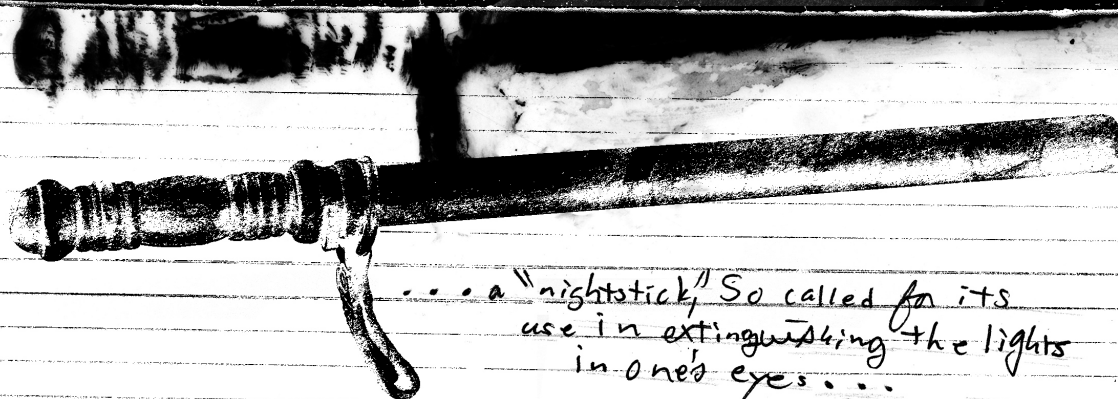 .... a "nightstick," So called for its
use in extinguishing the lights
in one's eyes....